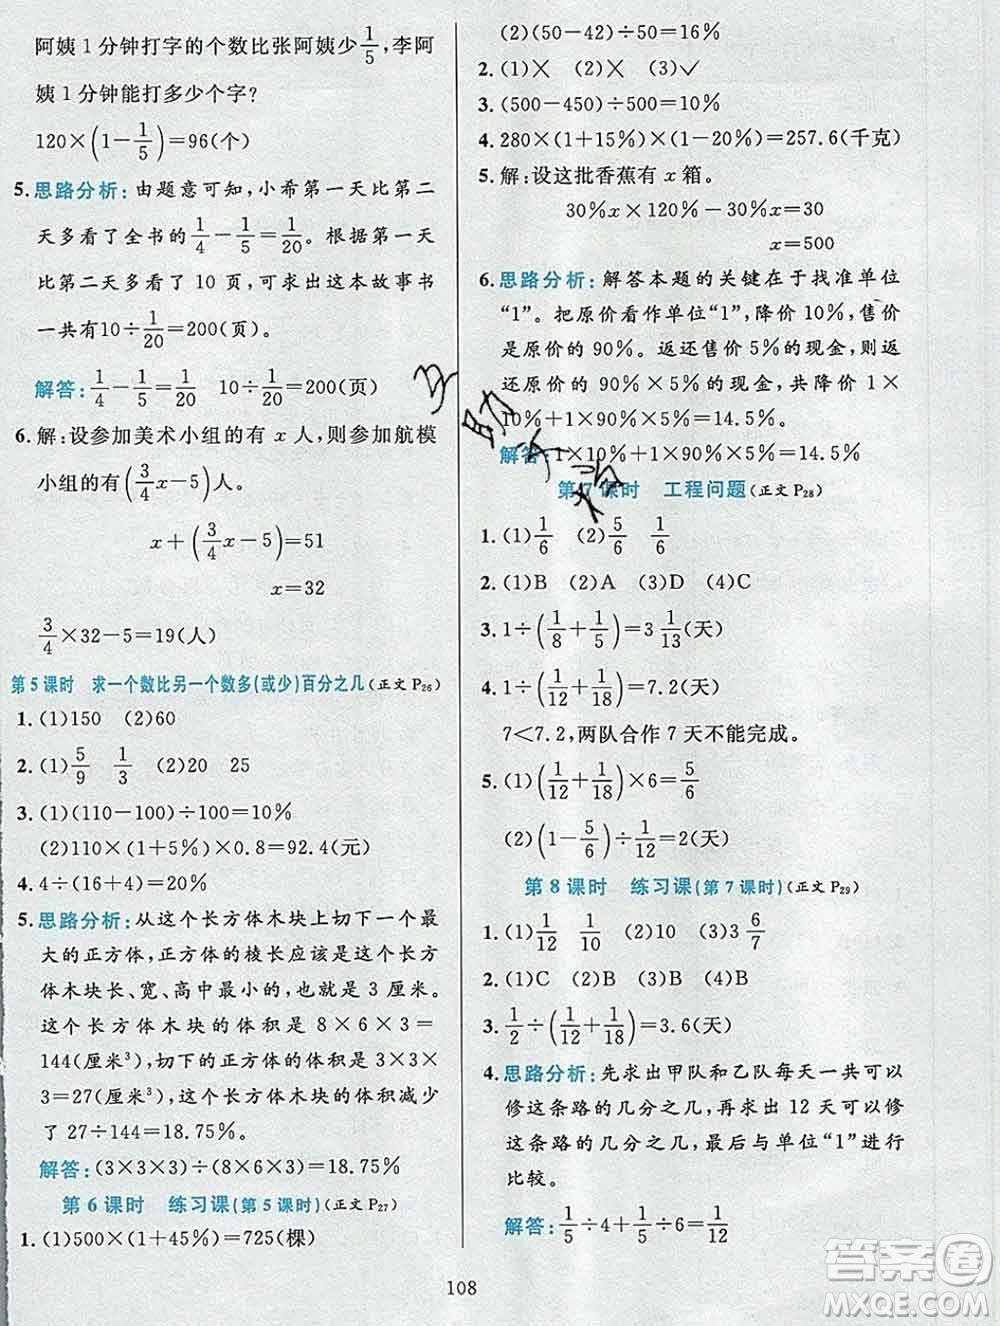 阿姨1分钟打字的个数比张阿姨少1/5,李阿
姨1分钟能打多少个字?
120×(1−1/5)=96(个)
5.思路分析:由题意可知,小希第一天比第二
天多看了全书的1/4−1/5=1/20。根据第一天
比第二天多看了10页,可求出这本故事书
一共有10÷1/20=200(页)。
解答:1/4−1/5=1/20 10÷1/20=200(页)
6.解:设参加美术小组的有x人,则参加航模
小组的有(3/4x−5)人。
x+(3/4x−5)=51
x=32
3/4×32−5=19(人)
第5课时 求一个数比另一个数多(或少)百分之几(正文P26)
1.(1)150 (2)60
2.(1)5/9 1/3 (2)20 25
3.(1)(110−100)÷100=10%
(2)110×(1+5%)×0.8=92.4(元)
4.4÷(16+4)=20%
5.思路分析:从这个长方体木块上切下一个最
大的正方体,正方体的棱长应该是这个长方
体木块长、宽、高中最小的,也就是3厘米。
这个长方体木块的体积是8×6×3=
144(厘米³),切下的正方体的体积是3×3×
3=27(厘米³),则这个长方体木块的体积减少
了27÷144=18.75%。
解答:(3×3×3)÷(8×6×3)=18.75%
第6课时 练习课(第5课时)(正文P27)
1.(1)500×(1+45%)=725(棵)
(2)(50−42)÷50=16%
2.(1)× (2)× (3)✓
3.(500−450)÷500=10%
4.280×(1+15%)×(1−20%)=257.6(千克)
5.解:设这批香蕉有x箱。
30%x×120%−30%x=30
x=500
6.思路分析:解答本题的关键在于找准单位
“1”。把原价看作单位“1”,降价10%,售价
是原价的90%。返还售价5%的现金,则返
还原价的90%×5%的现金,共降价1×
10%+1×90%×5%=14.5%。
解答:1×10%+1×90%×5%=14.5%
第7课时 工程问题(正文P28)
1.(1)1/6 (2)5/6 1/6
2.(1)B (2)A (3)D (4)C
3.1÷(1/8+1/5)=3 1/13(天)
4.1÷(1/12+1/18)=7.2(天)
7<7.2,两队合作7天不能完成。
5.(1)(1/12+1/18)×6=5/6
(2)(1−5/6)÷1/12=2(天)
第8课时 练习课(第7课时)(正文P29)
1.(1)1/12 1/10 (2)10 (3)3 6/7
2.(1)C (2)B (3)B (4)B
3.1/2÷(1/12+1/18)=3.6(天)
4.思路分析:先求出甲队和乙队每天一共可以
修这条路的几分之几,再求出12天可以修
这条路的几分之几,最后与单位“1”进行
比较。
解答:1/5÷4+1/5÷6=1/12
108
答案圈
MXQE.COM